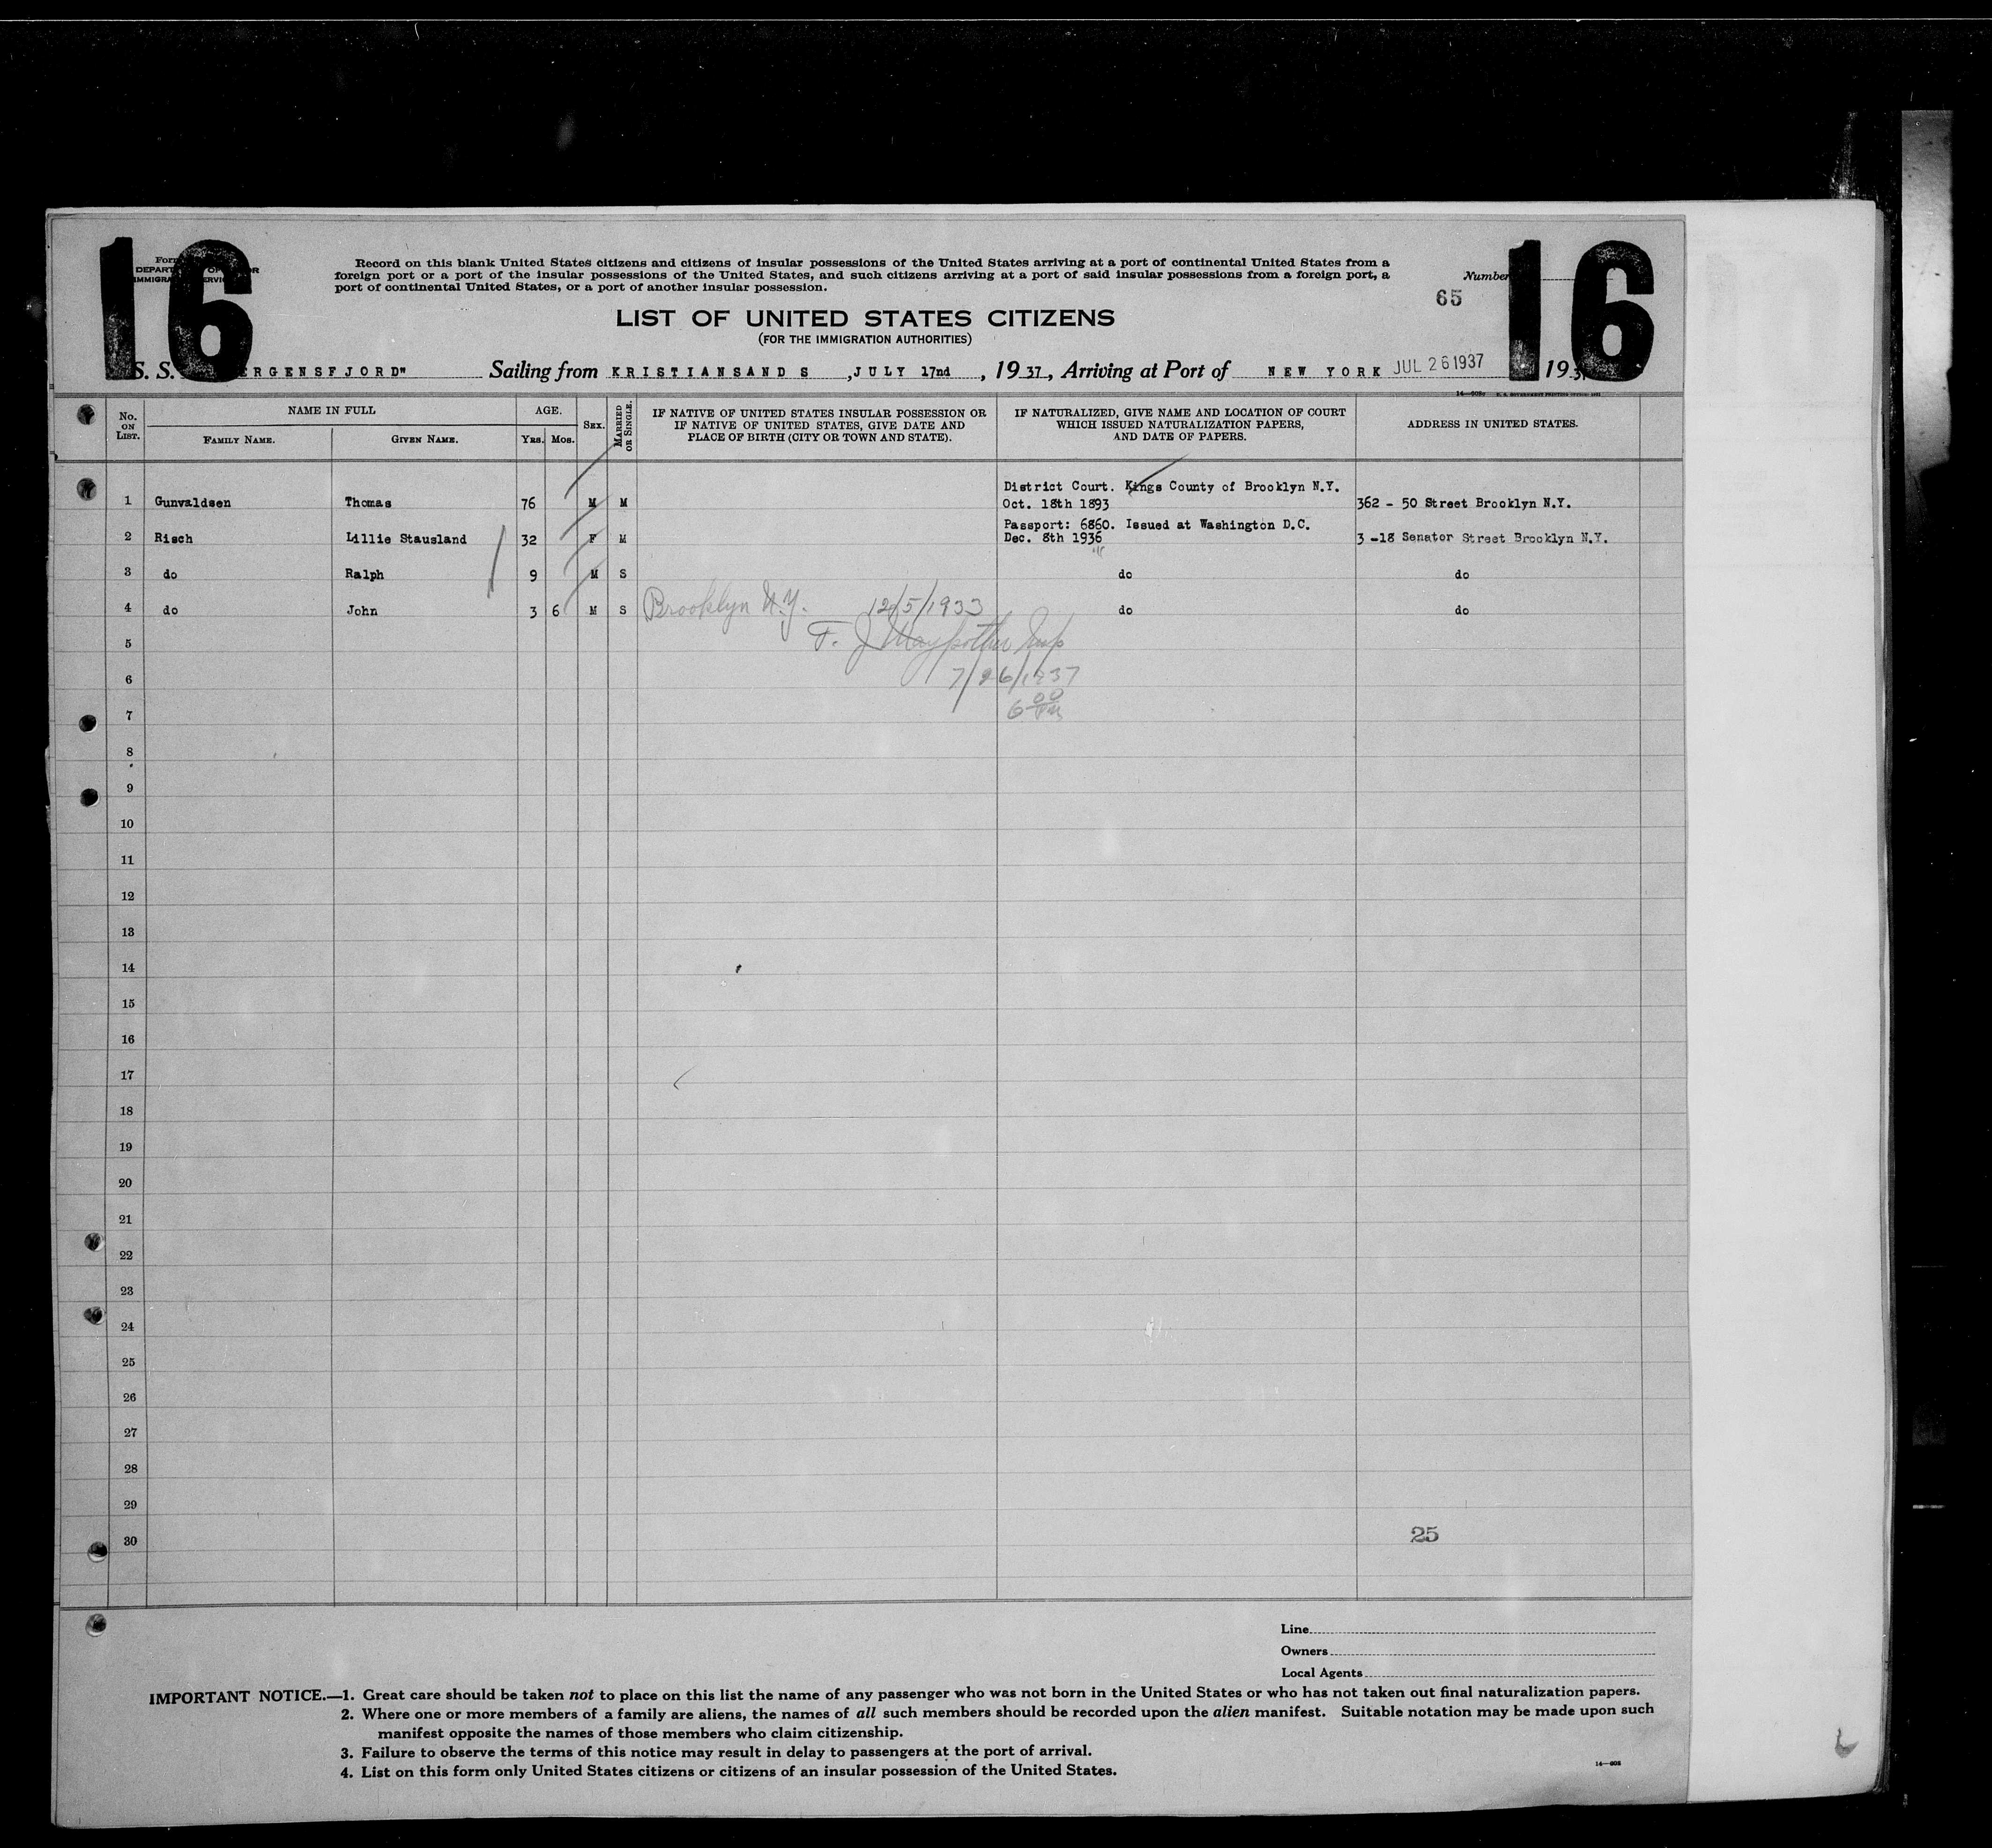 16
16
Record on this blank United States citizens and citizens of insular possessions of the United States arriving at a port of continental United States from a
foreign port or a port of the insular possessions of the United States, and such citizens arriving at a port of said insular possessions from a foreign port, a
port of continental United States, or a port of another insular possession.
Number
65
LIST OF UNITED STATES CITIZENS
(FOR THE IMMIGRATION AUTHORITIES)
S. S. ERGENSFJORD" Sailing from KRISTIANSAND S , JULY 17nd , 19 37, Arriving at Port of NEW YORK JUL 26 1937 19
No. ON LIST. NAME IN FULL AGE. SEX. MARRIED OR SINGLE. IF NATIVE OF UNITED STATES INSULAR POSSESSION OR IF NATIVE OF UNITED STATES, GIVE DATE AND PLACE OF BIRTH (CITY OR TOWN AND STATE). IF NATURALIZED, GIVE NAME AND LOCATION OF COURT WHICH ISSUED NATURALIZATION PAPERS, AND DATE OF PAPERS. ADDRESS IN UNITED STATES.
FAMILY NAME. GIVEN NAME. YRS. MOS.
District Court. Kings County of Brooklyn N.Y.
1 Gunvaldsen Thomas 76 M M Oct. 18th 1893 362 - 50 Street Brooklyn N.Y.
Passport: 6860. Issued at Washington D.C.
2 Risch Lillie Stausland 32 F M Dec. 8th 1936 3 -18 Senator Street Brooklyn N.Y.
3 do Ralph 9 M S do do
4 do John 3 6 M S Brooklyn N.Y. 12/5/1933 do do
5 F. J. Insp
6 7/26/1937
7 6 00 PM
8
9
10
11
12
13
14
15
16
17
18
19
20
21
22
23
24
25
26
27
28
29
30 25
Line
Owners
Local Agents
IMPORTANT NOTICE.—1. Great care should be taken not to place on this list the name of any passenger who was not born in the United States or who has not taken out final naturalization papers.
2. Where one or more members of a family are aliens, the names of all such members should be recorded upon the alien manifest. Suitable notation may be made upon such
manifest opposite the names of those members who claim citizenship.
3. Failure to observe the terms of this notice may result in delay to passengers at the port of arrival.
4. List on this form only United States citizens or citizens of an insular possession of the United States.